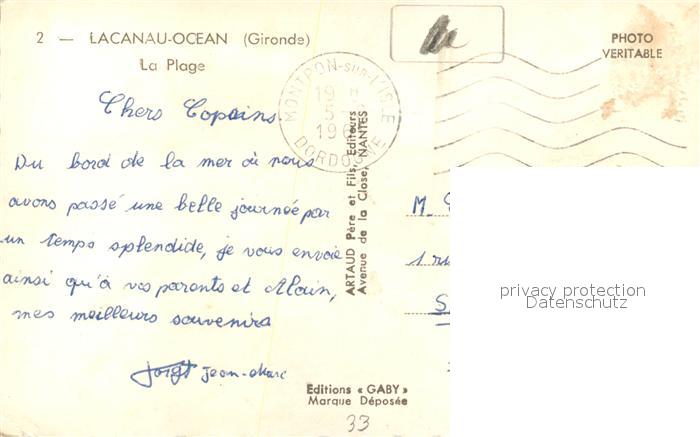 2 — LACANAU-OCEAN (Gironde)
La Plage
PHOTO
VERITABLE
MONTPON-sur-L'ISLE
DORDOGNE
Chers Copains
Du bord de la mer où nous
avons passé une belle journée par
un temps splendide, je vous envoie
ainsi qu'à vos parents et Alain,
mes meilleurs souvenirs
Jean-Marc
ARTAUD Père et Fils, Editeurs
Avenue de la Close, NANTES
M.
1 ru
S
privacy protection
Datenschutz
Editions « GABY »
Marque Déposée
33